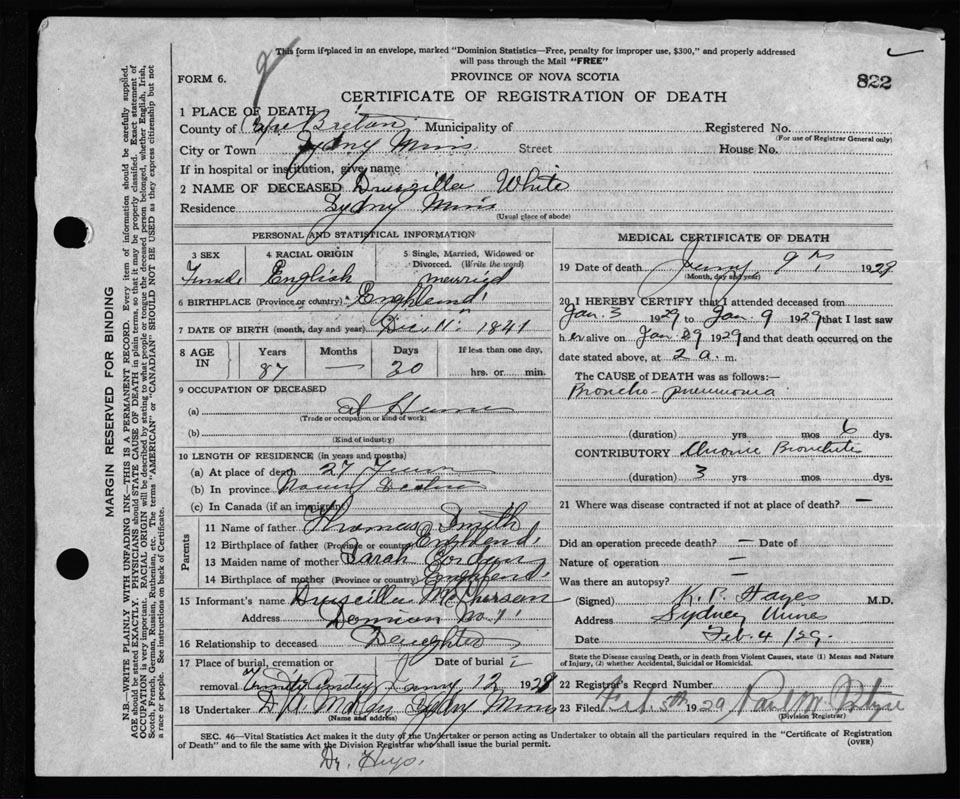 This form if placed in an envelope, marked "Dominion Statistics—Free, penalty for improper use, $300," and properly addressed
will pass through the Mail "FREE"
FORM 6.
PROVINCE OF NOVA SCOTIA
822
CERTIFICATE OF REGISTRATION OF DEATH
1 PLACE OF DEATH
County of Cape Briton Municipality of Registered No.
(For use of Registrar General only)
City or Town Sydny Mines Street House No.
If in hospital or institution, give name
2 NAME OF DECEASED Druscilla White
Residence Sydny Mines
(Usual place of abode)
PERSONAL AND STATISTICAL INFORMATION
3 SEX 4 RACIAL ORIGIN 5 Single, Married, Widowed or
Divorced. (Write the word)
Female English married
6 BIRTHPLACE (Province or country) England
7 DATE OF BIRTH (month, day and year) Dec. 11" 1841
8 AGE IN Years Months Days If less than one day,
87 — 20 hrs. or min.
9 OCCUPATION OF DECEASED
(a) at Home
(Trade or occupation or kind of work)
(b)
(Kind of industry)
10 LENGTH OF RESIDENCE (in years and months)
(a) At place of death 27 Years
(b) In province Nova Scotia
(c) In Canada (if an immigrant)
Parents
11 Name of father Thomas Smith
12 Birthplace of father (Province or country) England
13 Maiden name of mother Sarah
14 Birthplace of mother (Province or country) England
15 Informant's name Druscilla McPherson
Address Dominion No. 1
16 Relationship to deceased Daughter
17 Place of burial, cremation or Date of burial
removal Trinity Jany 12 1928
18 Undertaker D. A. McKay Sydny Mines
(Name and address)
MEDICAL CERTIFICATE OF DEATH
19 Date of death Jany 9 1929
(Month, day and year)
20 I HEREBY CERTIFY that I attended deceased from
Jan. 3 1929 to Jan. 9 1929 that I last saw
her alive on Jan 1929 and that death occurred on the
date stated above, at 2 a. m.
The CAUSE of DEATH was as follows:—
Broncho-pneumonia
(duration) yrs mos 6 dys.
CONTRIBUTORY Chronic Bronchitis
(duration) 3 yrs mos dys.
21 Where was disease contracted if not at place of death? —
Did an operation precede death? — Date of
Nature of operation —
Was there an autopsy? —
(Signed) K. P. Hayes M.D.
Address Sydney Mines
Date Feb. 4 /29.
State the Disease causing Death, or in death from Violent Causes, state (1) Means and Nature
of Injury, (2) whether Accidental, Suicidal or Homicidal.
22 Registrar's Record Number
23 Filed Feb. 5th 1929
(Division Registrar)
SEC. 46—Vital Statistics Act make it the duty of the Undertaker or person acting as Undertaker to obtain all the particulars required in the "Certificate of Registration
of Death" and to file the same with the Division Registrar who shall issue the burial permit.
(OVER)
Dr. Hays.
MARGIN RESERVED FOR BINDING
N.B.—WRITE PLAINLY WITH UNFADING INK—THIS IS A PERMANENT RECORD. Every item of information should be carefully supplied.
AGE should be stated EXACTLY. PHYSICIANS should STATE CAUSE OF DEATH in plain terms, so that it may be properly classified. Exact statement of
OCCUPATION is very important. RACIAL ORIGIN will be described by stating to what people or tongue the deceased person belonged, whether English, Irish,
Scotch, French, German, Russian, Ruthenian, etc. The terms "AMERICAN" or "CANADIAN" SHOULD NOT BE USED as they express citizenship but not
a race or people. See instructions on back of Certificate.